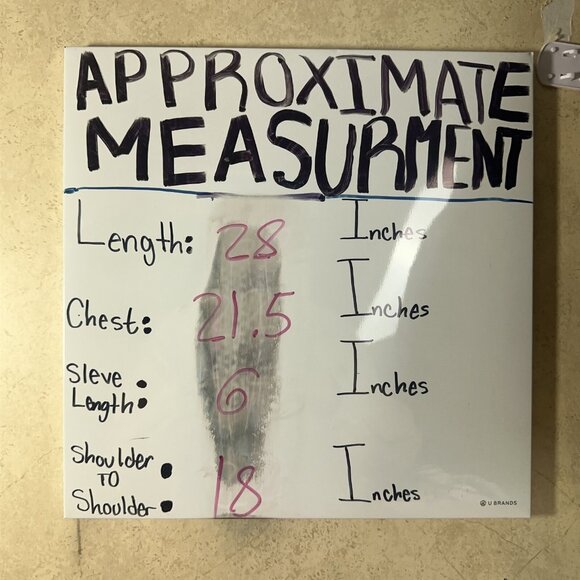 APPROXIMATE
MEASURMENT
Length: 28 Inches
Chest: 21.5 Inches
Sleve
Length: 6 Inches
Shoulder
TO
Shoulder: 18 Inches
U BRANDS